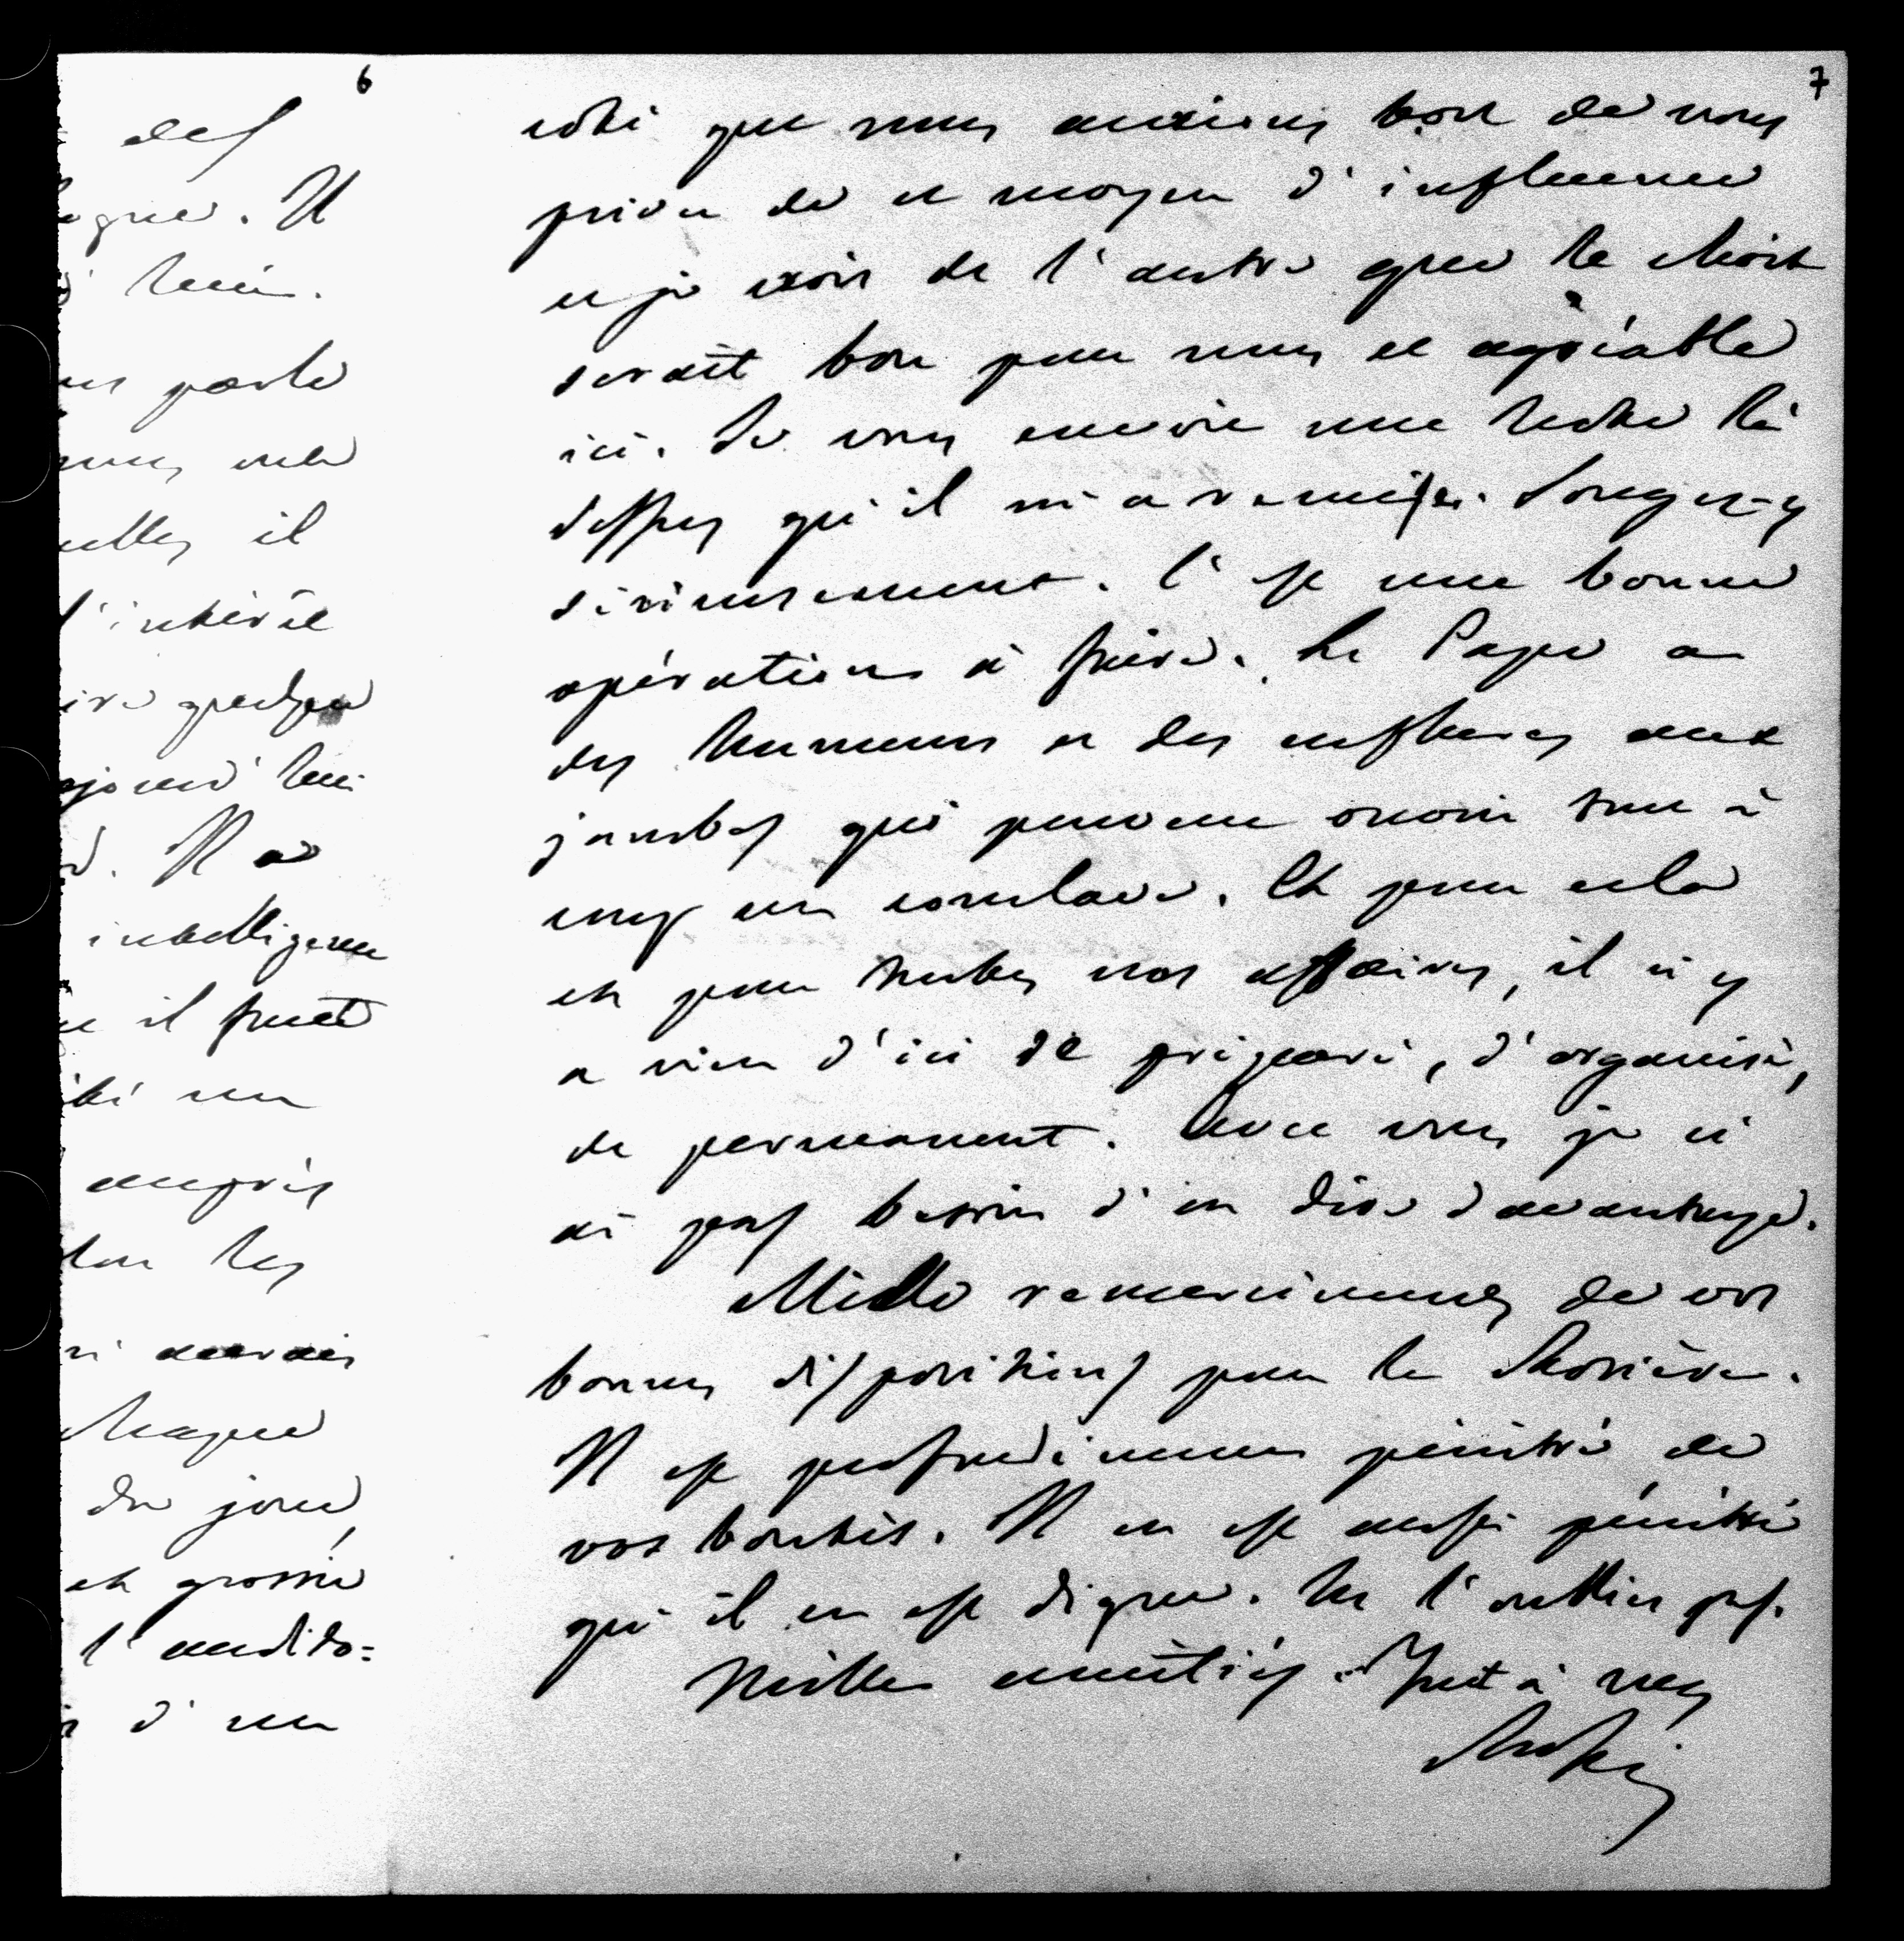 6
des
Il
lui.
parle
il
l'intérêt
quelque
Il a
intelligence
il faut
un
auprès
les
chaque
du jour
et grossie
l'audito=
d'un
7
côté que nous aurions tort de nous
priver de ce moyen d'influence
et je crois de l'autre que le choix
serait bon pour nous et agréable
ici. Je vous envoie une lettre là
dessus qu'il m'a remise. Songez-y
sérieusement. C'est une bonne
opération à faire. Le Pape a
des humeurs et des enflures aux
jambes qui peuvent ouvrir tout à
coup un conclave. Et pour cela
et pour toutes nos affaires, il n'y
a rien d'ici de préparé, d'organisé,
de permanent. Avec vous je n'
ai pas besoin d'en dire davantage.
Mille remerciemens de vos
bonnes dispositions pour la
Il est profondément pénétré de
vos bontés. Il en est aussi pénétré
qu'il en est digne. Ne l'oubliez pas.
Mille amitiés. Tout à vous